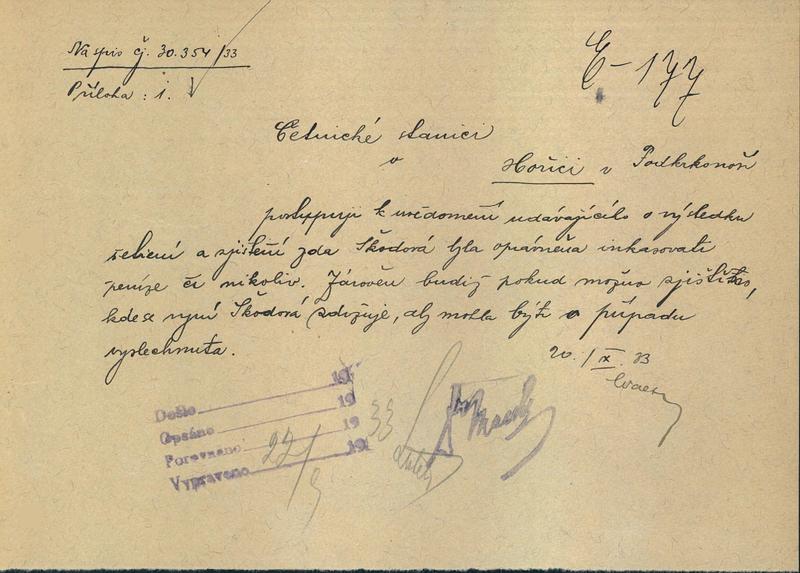 Na spis čj. 30.354/33
E-177
Příloha: 1.
Četnické stanici
v
Hořici v Podkrkonoší
postupuji k uvědomení udávajícího o výsledku
šetření a zjištění zda Škodová byla oprávněna inkasovati
peníze či nikoliv. Zároveň budiž pokud možno zjištěno,
kde se nyní Škodová zdržuje, aby mohla býti o případu
vyslechnuta.
20./IX. 33
Došlo 19
Opsáno 19
Porovnáno 19
Vypraveno 22/9 19 33